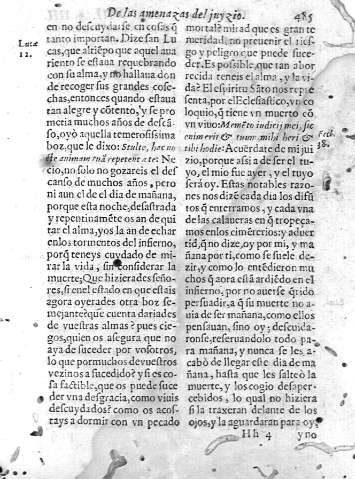 De las amenazas del juyzio.
485
en no descuydarse en cosas q̃
tanto importan. Dize san Lu
cas, que al tiẽpo que aquel aua
riento se estaua requebrando
con su alma, y no hallaua don
de recoger sus grandes cose-
chas, entonces quando estaua
tan alegre y cõtento, y se pro
metia muchos años de descã-
so, oyò aquella temerosissima
boz, que le dixo: Stulte, hac no-
cte animam tuã repetent à te: Ne
cio, no solo no gozareis el des
canso de muchos años, pero
ni aun el de el dia de mañana,
porque esta noche, desastrada
y repentinamẽte os an de qui
tar el alma, y os la an de echar
en los tormentos del infierno,
porq̃ teneys cuydado de mi-
rar la vida, sin considerar la
muerte; Que hizierades seño-
res, si en el estado en que estais
agora oyerades otra boz se-
mejante? que cuenta dariades
de vuestras almas? pues cie-
gos, quien os asegura que no
aya de suceder por vosotros,
lo que por muchos de vuestros
vezinos a sucedido? y si es co-
sa factible, que os puede suce
der vna desgracia, como viuis
descuydados? como os acos-
tays a dormir con vn pecado
Lucæ
12.
mortal? mirad que es gran te
meridad, no preuenir el ties-
go y peligro que puede suce-
der. Es possible, que tan abor
recida teneis el alma, y la vi-
da? El espiritu Sãto nos repre
senta, por el Ecclesiastico, vn co
loquio, q̃ tiene vn muerto cõ
vn viuo: Memẽto iudicij mei, sic
enim erit & tuum, mihi heri &
tibi hodie: Acuerdate de mi jui
zio, porque assi a de ser el tu-
yo, el mio fue ayer, y el tuyo
serà oy. Estas notables razo-
nes nos dizẽ cada dia los difũ
tos q̃ enterramos, y cada vna
de las calaueras en q̃ tropeça-
mos en los cimẽterios: y aduer
tid, q̃ no dize, oy por mi, y ma
ñana por ti, como se suele de-
zir, y como lo entẽdieron mu
chos q̃ aora està ardiẽdo en el
infierno, por no auerse q̃rido
persuadir, a q̃ su muerte no a-
uia de ser mañana, como ellos
pensauan, sino oy; descuida-
ronse, reseruandolo todo pa-
ra mañana, y nunca se les a-
cabò de llegar este dia de ma-
ñana, hasta que les salteò la
muerte, y los cogio desaper-
cebidos, lo qual no hiziera
si la traxeran delante de los
ojos, y la aguardaran para oy,
Eccl.
38.
Hh 4
y no